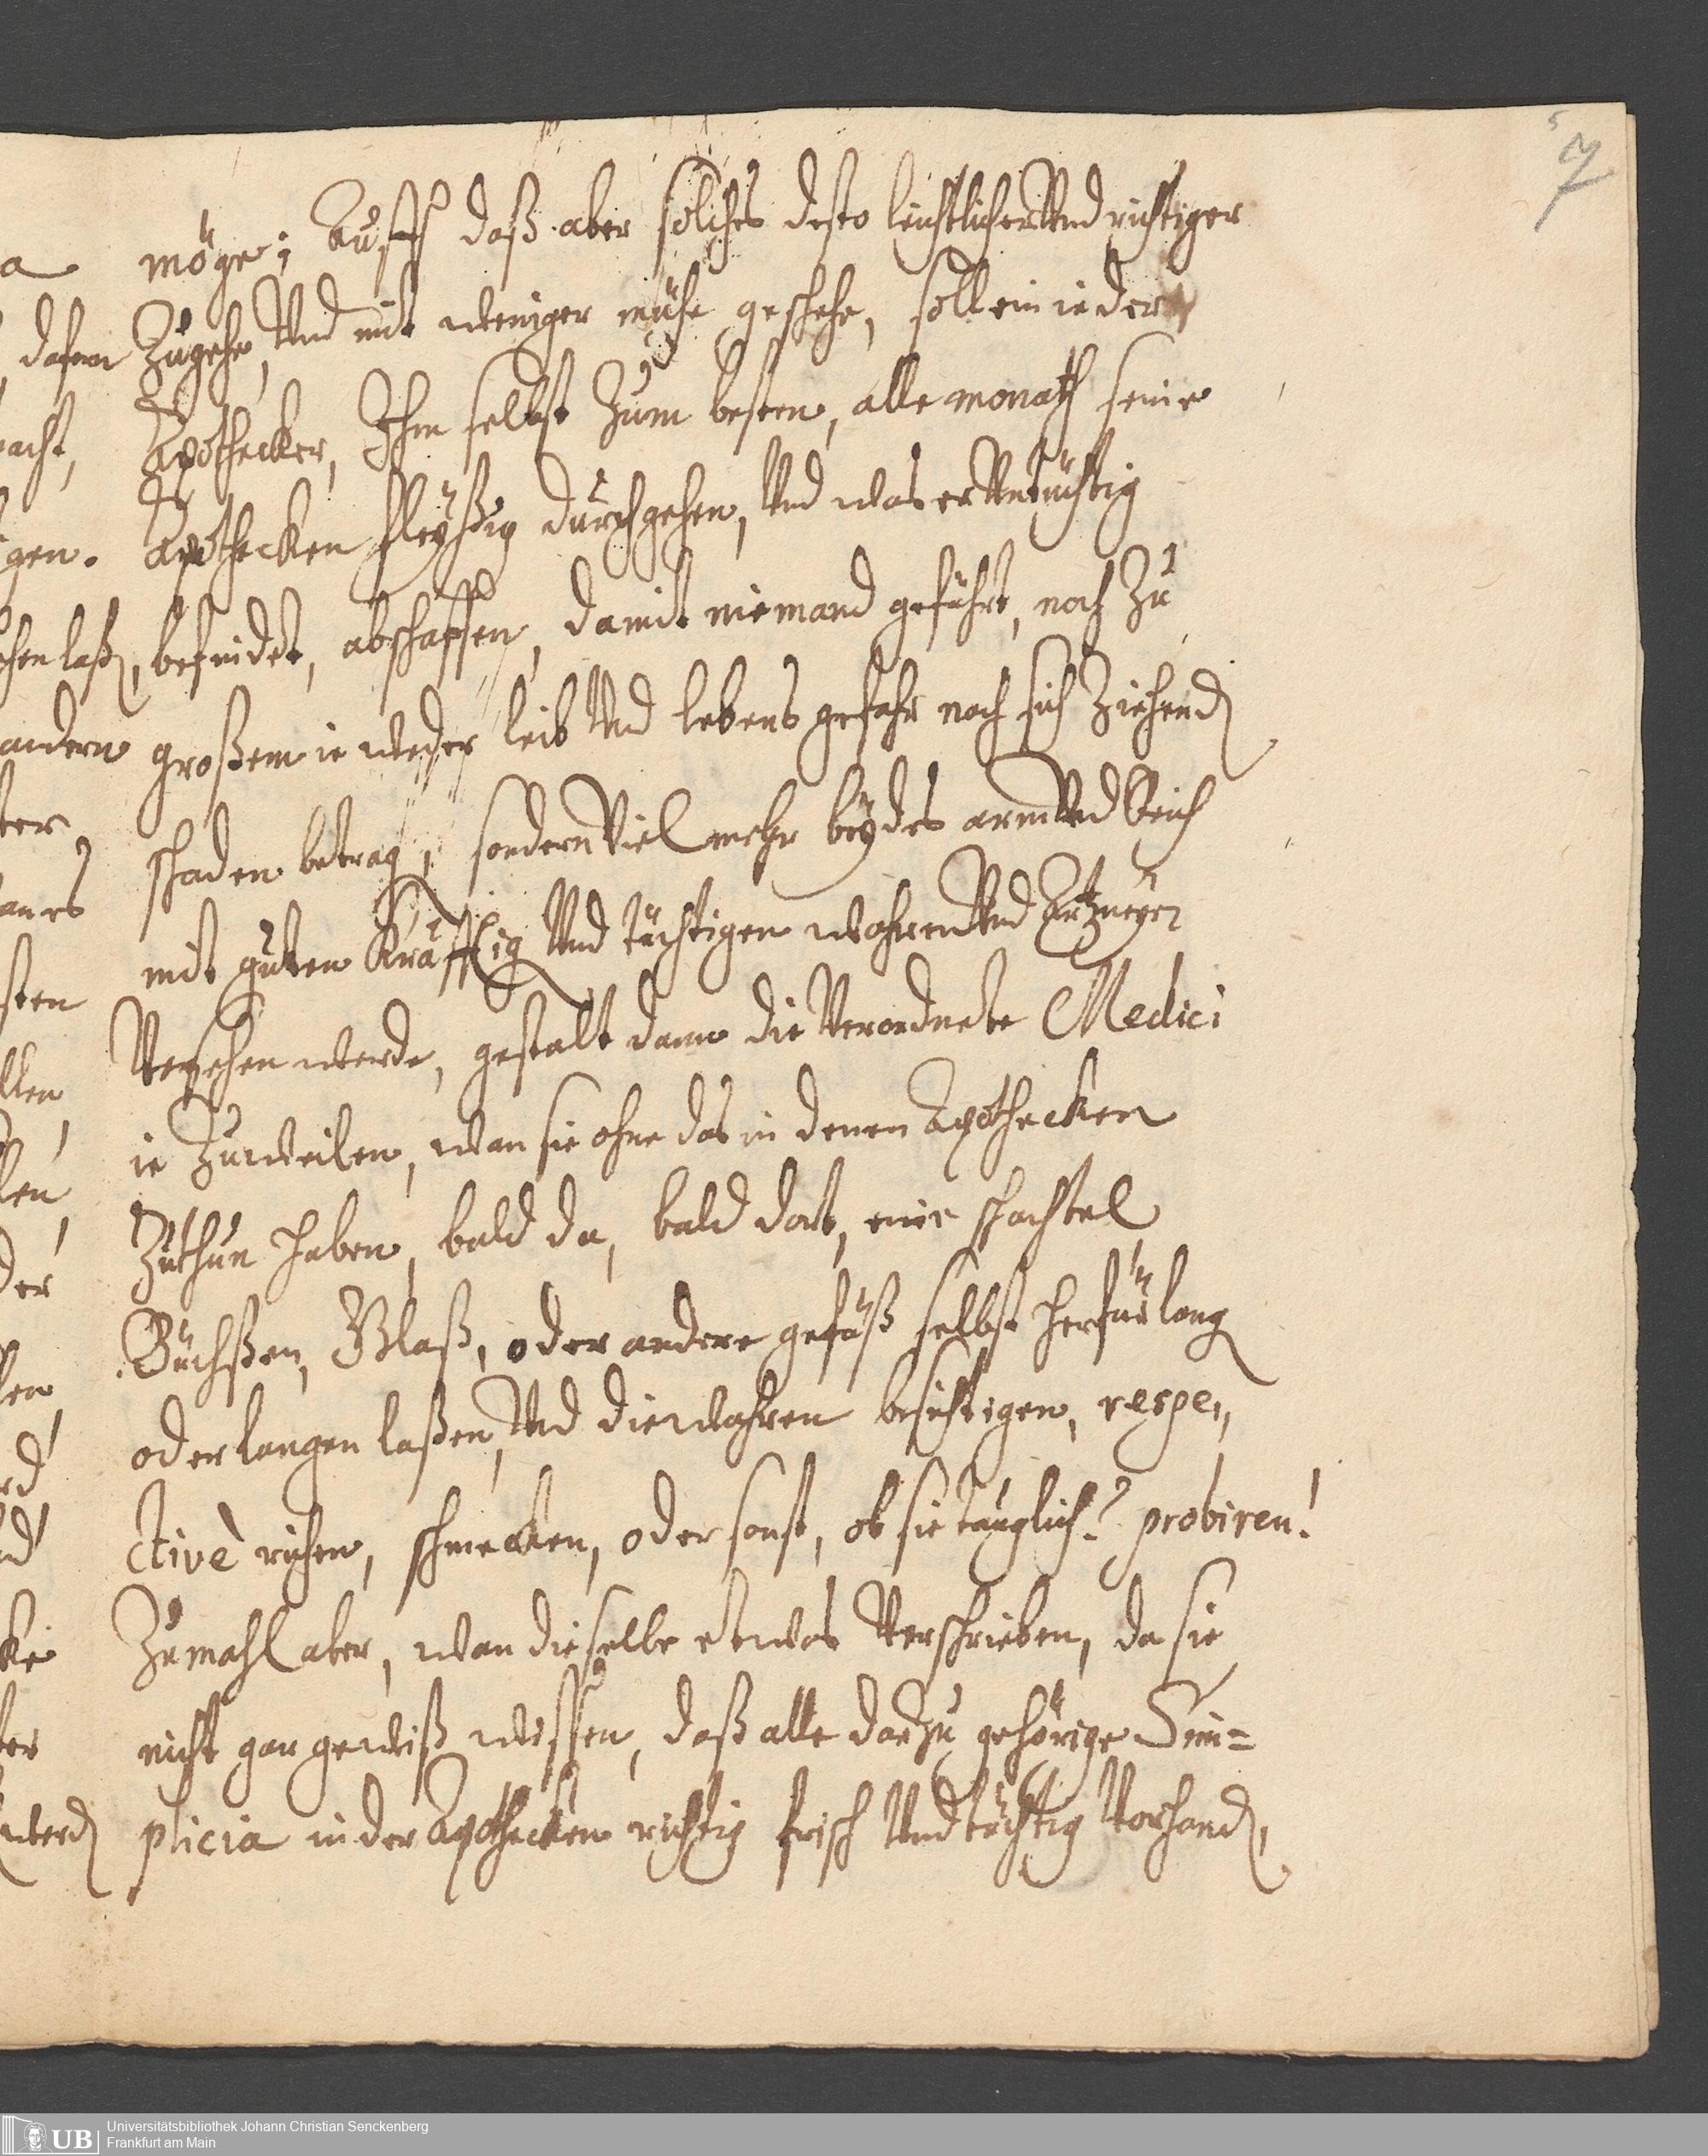 7
möge; Auff daß aber solches desto leichtlicher Vnd richtiger
Zugehe, Vnd mit weniger mühe geschehe, soll ein ieder
Apothecker, Ihm selbst Zum besten, alle monath seine
Apothecken fleyßig durchgehen, Vnd was er Vntüchtig
befindet, abschaffen, damit niemand gefährt, noch Zu
großem ie weder leib Vnd lebens gefahr nach sich Ziehend
schaden betrag, sondern Viel mehr beydes arm Vnd Reich
mit guten Kräfftig Vnd tüchtigen wahren Vnd Artzneyen
Versehen werde, gestalt dann die Verordnete Medici
ie Zuweilen, wan sie ohne das in denen Apothecken
Zuthun haben, bald da, bald dort, eine schachtel
Büchßen, Glaß, oder andere gefäß selbst herfür lang
oder langen laßen, Vnd die wahren besichtigen, respe,,
ctivè richen, schmecken, oder sonst, ob sie tauglich? probiren!
Zumahl aber, wan dieselbe etwas Verschrieben, da sie
nicht gar gewiß wissen, daß alle darzu gehörige Sim=
plicia in der Apothecken richtig frisch Vnd tüchtig Vorhand,
a
dafern
acht,
gen.
chen laß,
andern
ter,
sten
llen,
der
werd
UB Universitätsbibliothek Johann Christian Senckenberg
Frankfurt am Main